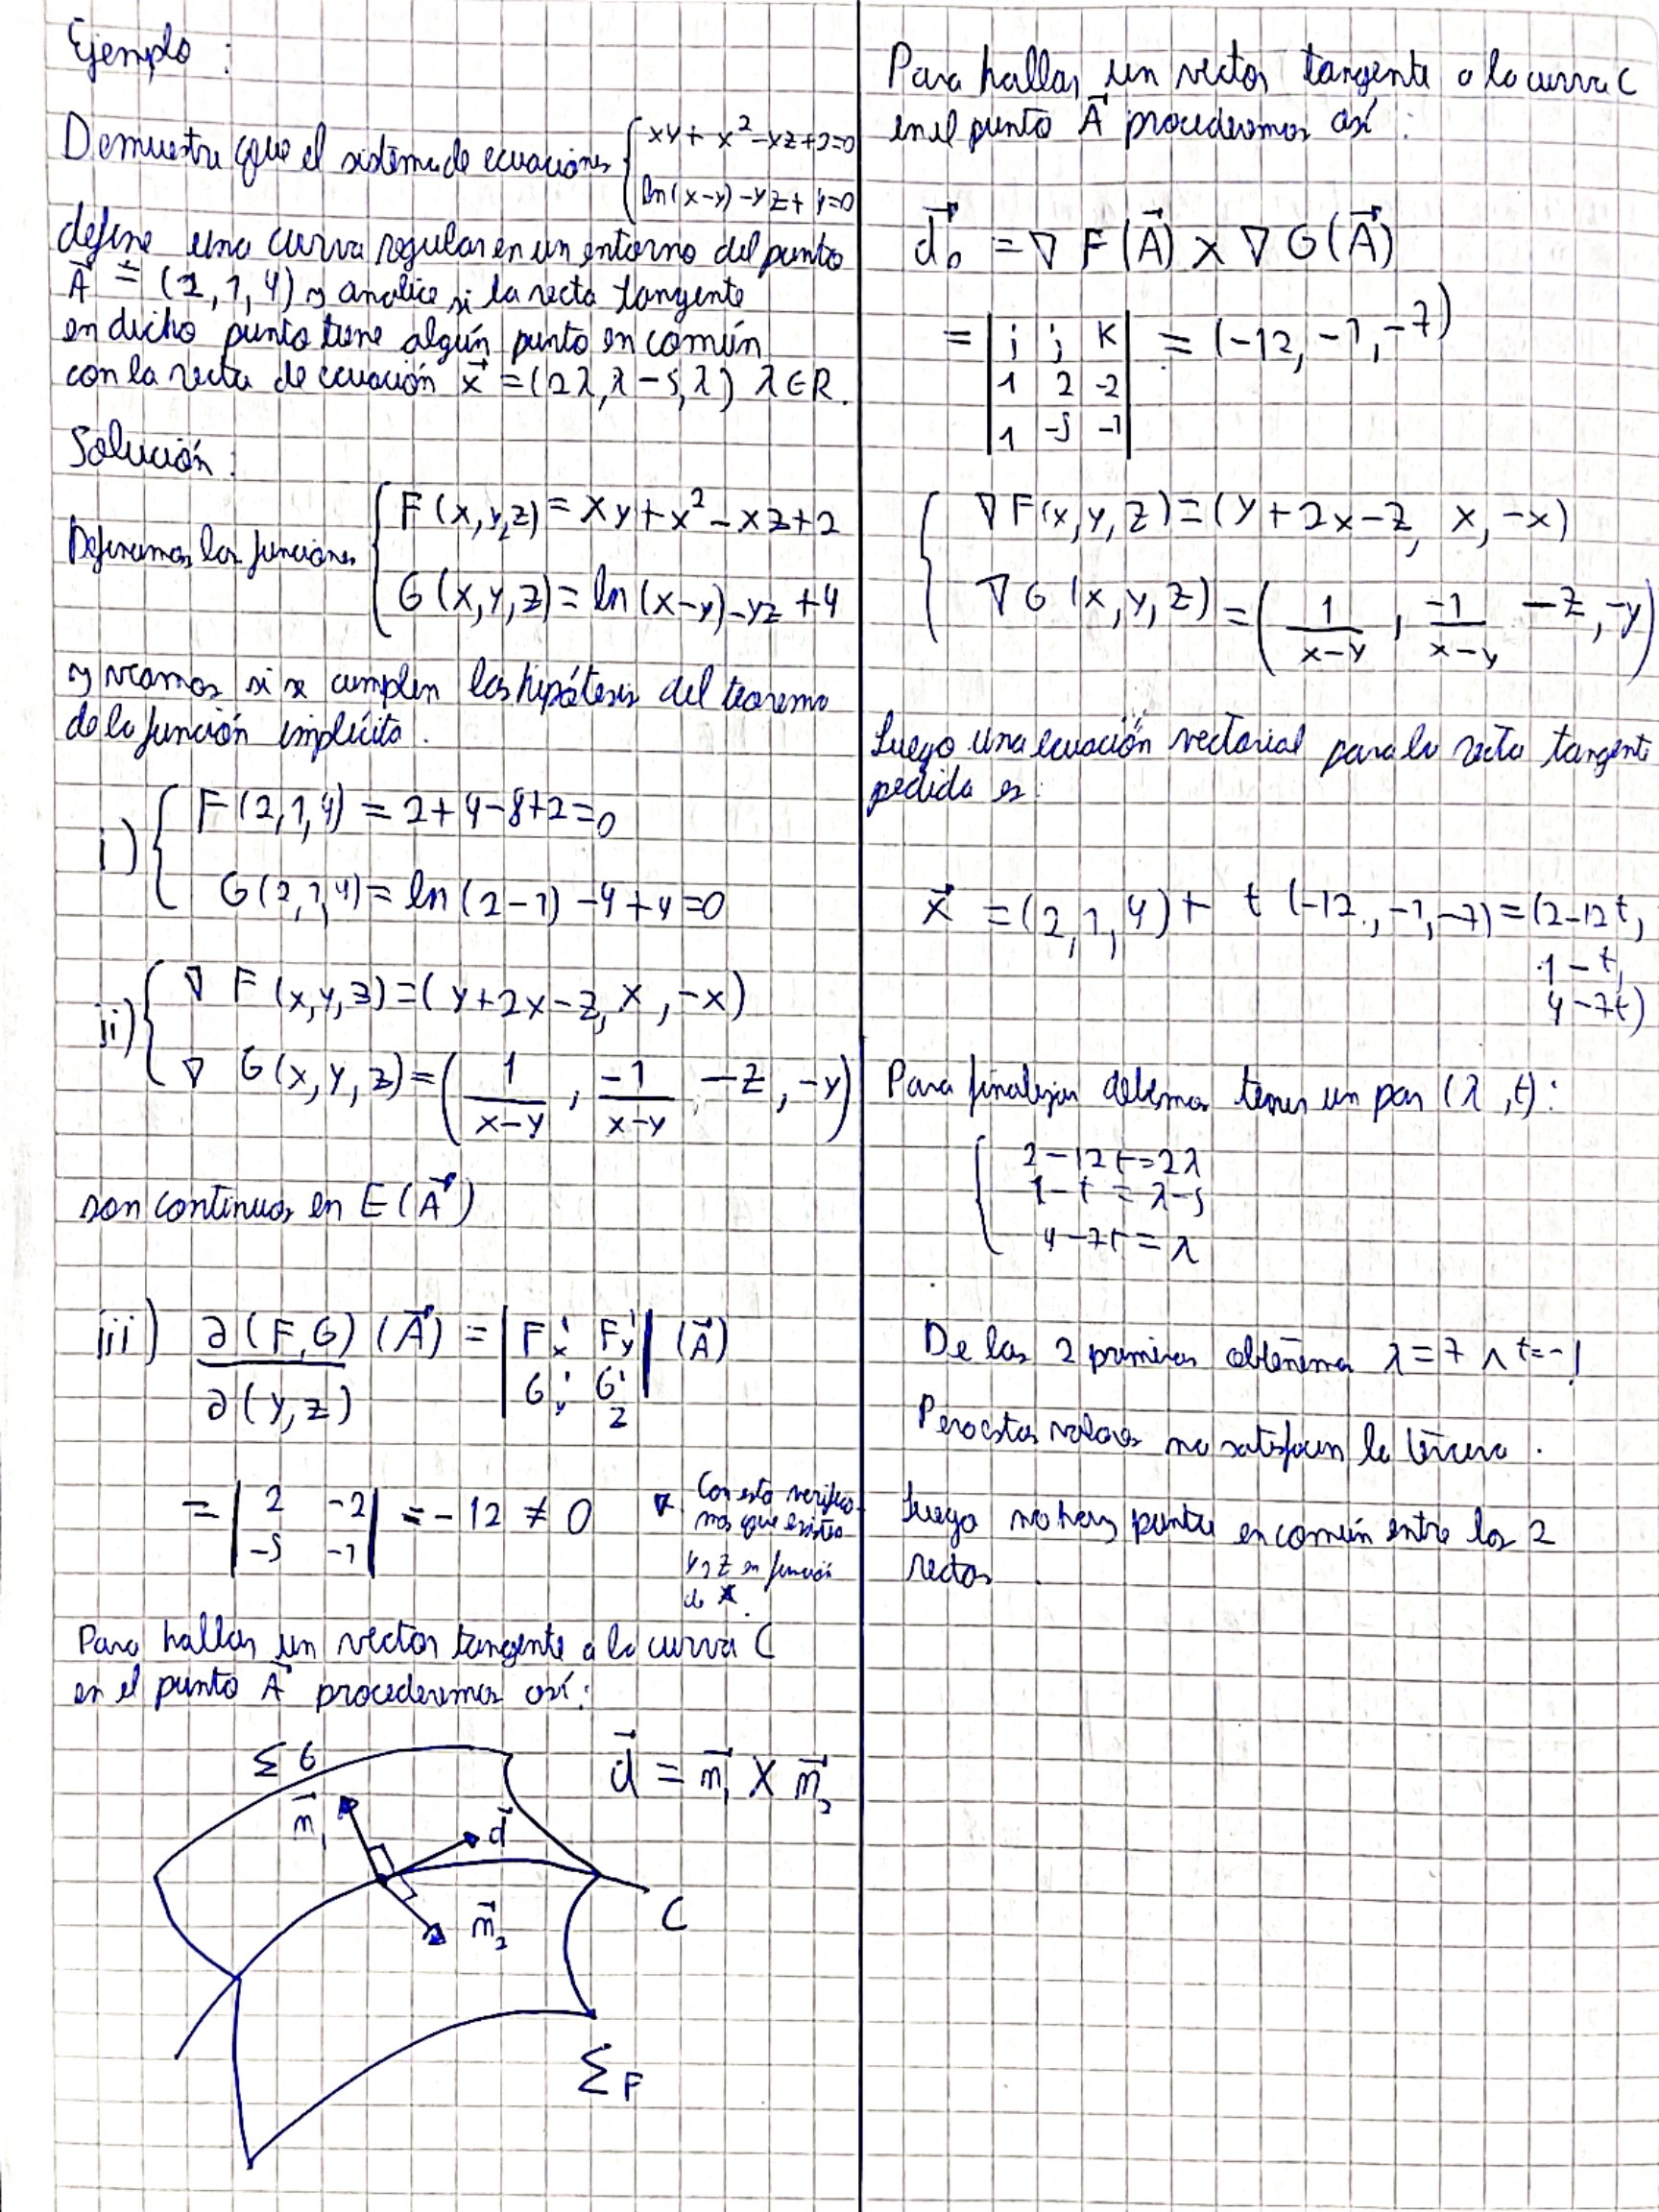 Ejemplo :
Demuestre que el sistema de ecuaciones { xy + x² - xz + 2 = 0
ln(x-y) - yz + 4 = 0
define una curva regular en un entorno del punto
A⃗ = (2, 1, 4) y analice si la recta tangente
en dicho punto tiene algún punto en común
con la recta de ecuación x⃗ = (2λ, λ-5, λ) λ ∈ R.
Solución:
Definimos las funciones { F(x,y,z) = xy + x² - xz + 2
G(x,y,z) = ln(x-y) - yz + 4
y veamos si se cumplen las hipótesis del teorema
de la función implícita.
i) { F(2,1,4) = 2 + 4 - 8 + 2 = 0
G(2,1,4) = ln(2-1) - 4 + 4 = 0
ii) { ∇ F(x,y,z) = (y+2x-z, x, -x)
∇ G(x,y,z) = (1/(x-y), -1/(x-y) - z, -y)
son continuas en E(A⃗)
iii) ∂(F,G)/∂(y,z) (A⃗) = | F'x F'y | (A⃗)
| G'y G'z |
= | 2 -2 | = -12 ≠ 0
| -5 -1 |
Con esto verifica-
mos que existen
y, z en función
de x.
Para hallar un vector tangente a la curva C
en el punto A⃗ procederemos así:
Σ G
d⃗ = n⃗₁ X n⃗₂
n⃗₁
d⃗
n⃗₂
C
Σ F
Para hallar un vector tangente a la curva C
en el punto A⃗ procederemos así:
d⃗₀ = ∇ F(A⃗) × ∇ G(A⃗)
= | i j k | = (-12, -1, -7)
| 1 2 -2 |
| 1 -5 -1 |
{ ∇F(x,y,z) = (y+2x-z, x, -x)
∇G(x,y,z) = (1/(x-y), -1/(x-y) - z, -y)
Luego una ecuación vectorial para la recta tangente
pedida es:
x⃗ = (2,1,4) + t (-12, -1, -7) = (2-12t,
1-t,
4-7t)
Para finalizar debemos tener un par (λ, t):
{ 2-12t = 2λ
1-t = λ-5
4-7t = λ
De las 2 primeras obtenemos λ=7 ∧ t=-1
Pero estos valores no satisfacen la tercera.
Luego no hay puntos en común entre las 2
rectas.